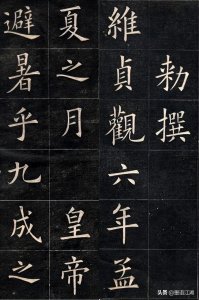 勑撰
維貞觀六年孟
夏之月 皇帝
避暑乎九成之
头条 @墨语江湖